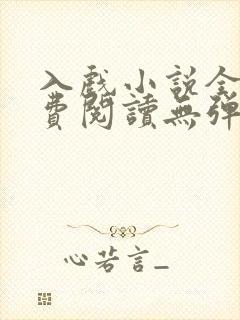 入戲小說全
費閱讀無彈
心若言_